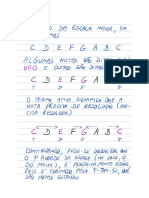 DA ESCALA MAIOR, EM
C D E F G A B C
ALGUMAS NOTAS SÃO DITAS
VEIS E OUTRAS SÃO DITAS
C D E F G A B C
O TERMO ATIVA SIGNIFICA QUE A
NOTA PRECISA DE RESOLUÇÃO (NE-
CITA RESOLVER)
C D E F G A B C
CONTINUANDO, PODE-SE OBSERVAR QUE
O 1º ACORDE DA ESCALA (NO CASO, O
DÓ MAIOR) É PERFEITAMENTE ESTÁVEL
POIS É FORMADO PELA T-3M-5J, QUE
SÃO NOTAS ESTÁVEIS